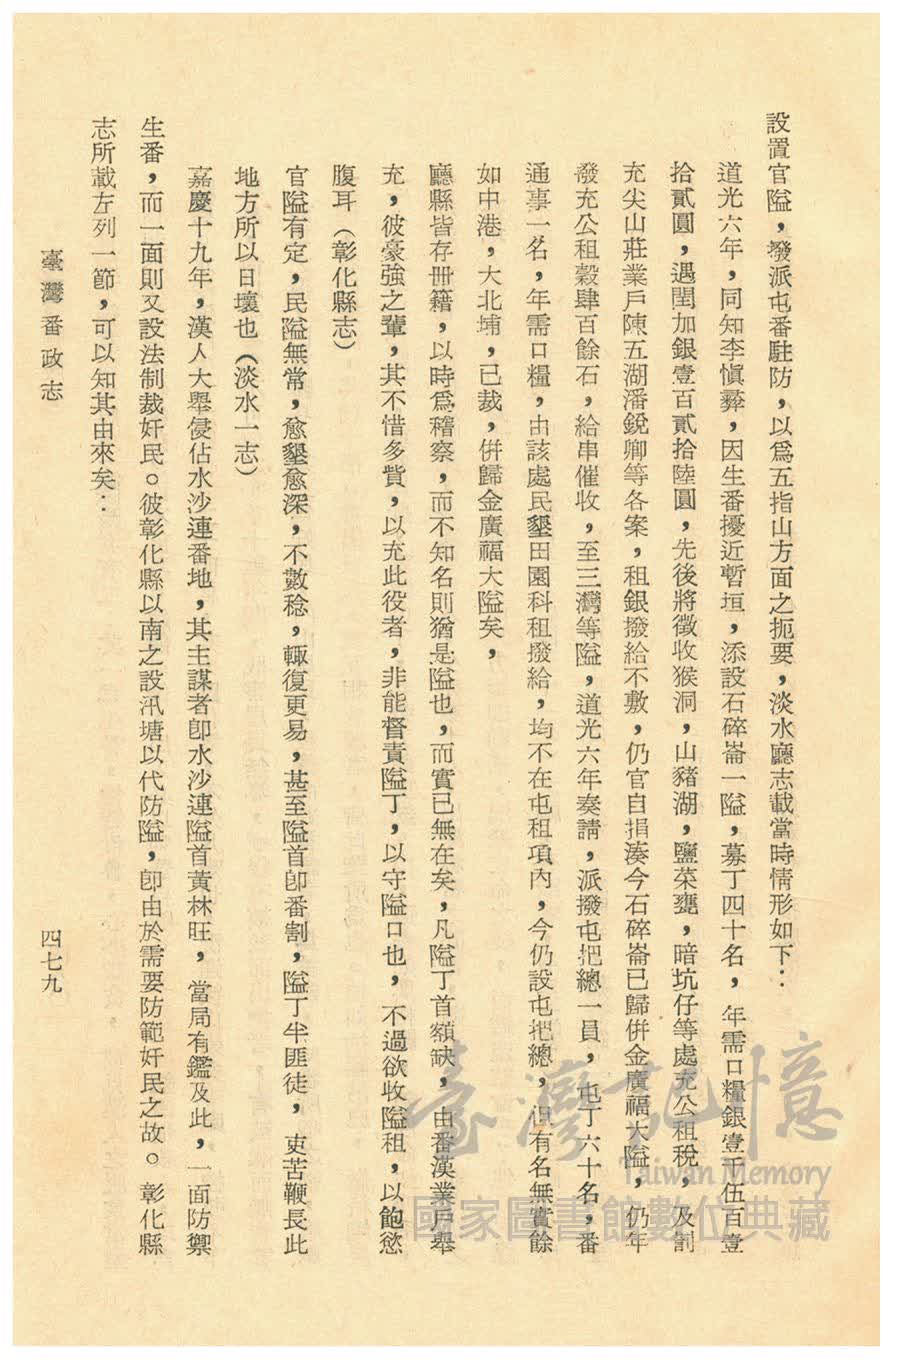 設置官隘，撥派屯番駐防，以爲五指山方面之扼要，淡水廳志載當時情形如下：
道光六年，同知李愼彝，因生番擾近暫垣，添設石碎崙一隘，募丁四十名，年需口糧銀壹千伍百壹
拾貳圓，遇閏加銀壹百貳拾陸圓，先後將徵收猴洞，山豬湖，鹽菜甕，暗坑仔等處充公租稅，及割
充尖山莊業戶陳五湖潘銳卿等各案，租銀撥給不敷，仍官自捐湊今石碎崙已歸併金廣福大隘，仍年
發充公租穀肆百餘石，給串催收，至三灣等隘，道光六年奏請，派撥屯把總一員，屯丁六十名，番
通事一名，年需口糧，由該處民墾田園科租撥給，均不在屯租項內，今仍設屯把總，但有名無實餘
如中港，大北埔，已裁，併歸金廣福大隘矣，
廳縣皆存册籍，以時爲稽察，而不知名則猶是隘也，而實已無在矣，凡隘丁首額缺，由番漢業戶舉
充，彼豪強之輩，其不惜多貲，以充此役者，非能督責隘丁，以守隘口也，不過欲收隘租，以飽慾
腹耳（彰化縣志）
官隘有定，民隘無常，愈墾愈深，不數稔，輙復更易，甚至隘首卽番割，隘丁半匪徒，吏苦鞭長此
地方所以日壞也（淡水一志）
嘉慶十九年，漢人大舉侵佔水沙連番地，其主謀者卽水沙連隘首黃林旺，當局有鑑及此，一面防禦
生番，而一面則又設法制裁奸民。彼彰化縣以南之設汛塘以代防隘，卽由於需要防範奸民之故。彰化縣
志所載左列一節，可以知其由來矣：
臺灣番政志
四七九
臺灣記憶
Taiwan Memory
國家圖書館數位典藏